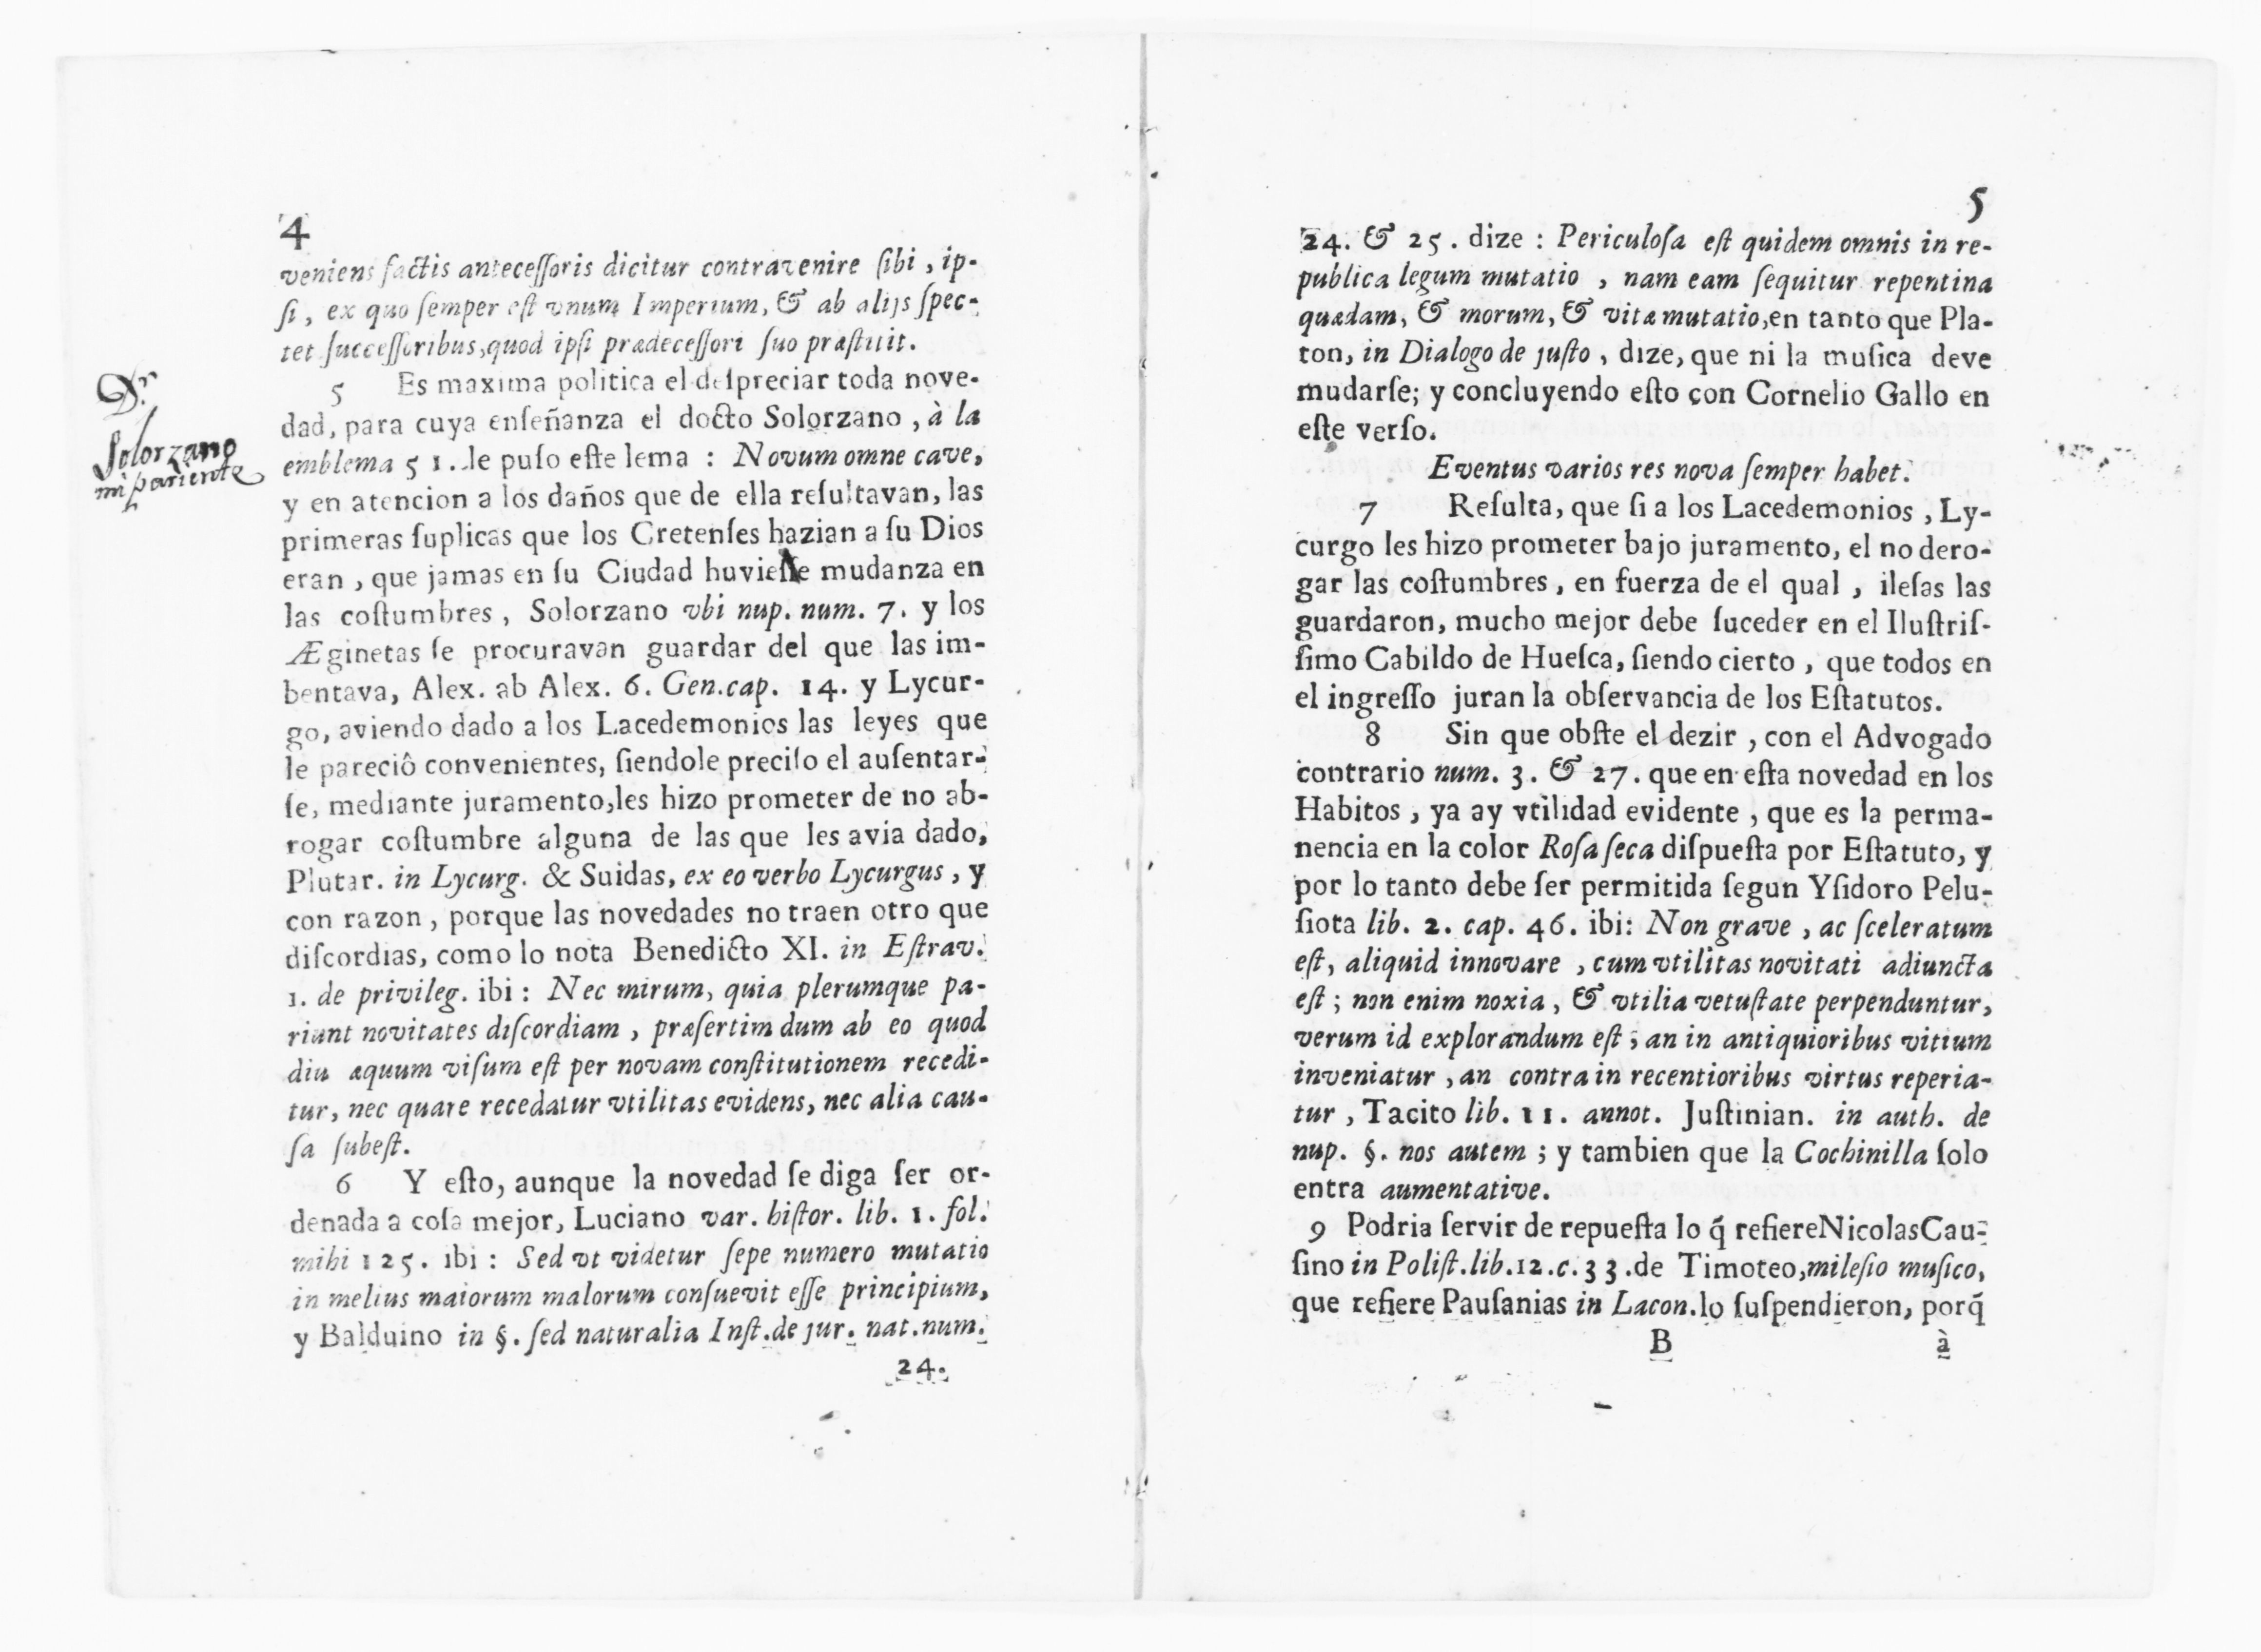 4
veniens factis antecessoris dicitur contravenire sibi, ip-
si, ex quo semper est vnum Imperium, & ab alijs spec-
tet successoribus, quod ipsi prædecessori suo præstuit.
Dr.
Solorzano
mi pariente
5 Es maxima politica el despreciar toda nove-
dad, para cuya enseñanza el docto Solorzano, à la
emblema 51. le puso este lema: Novum omne cave,
y en atencion a los daños que de ella resultavan, las
primeras suplicas que los Cretenses hazian a su Dios
eran, que jamas en su Ciudad huviesse mudanza en
las costumbres, Solorzano vbi nup. num. 7. y los
Æginetas se procuravan guardar del que las im-
bentava, Alex. ab Alex. 6. Gen. cap. 14. y Lycur-
go, aviendo dado a los Lacedemonios las leyes que
le pareciô convenientes, siendole preciso el ausentar-
se, mediante juramento, les hizo prometer de no ab-
rogar costumbre alguna de las que les avia dado,
Plutar. in Lycurg. & Suidas, ex eo verbo Lycurgus, y
con razon, porque las novedades no traen otro que
discordias, como lo nota Benedicto XI. in Estrav.
1. de privileg. ibi: Nec mirum, quia plerumque pa-
riunt novitates discordiam, præsertim dum ab eo quod
diu æquum visum est per novam constitutionem recedi-
tur, nec quare recedatur vtilitas evidens, nec alia cau-
sa subest.
6 Y esto, aunque la novedad se diga ser or-
denada a cosa mejor, Luciano var. histor. lib. 1. fol.
mihi 125. ibi: Sed vt videtur sepe numero mutatio
in melius maiorum malorum consuevit esse principium,
y Balduino in §. sed naturalia Inst. de jur. nat. num.
24.
5
24. & 25. dize: Periculosa est quidem omnis in re-
publica legum mutatio, nam eam sequitur repentina
quædam, & morum, & vitæ mutatio, en tanto que Pla-
ton, in Dialogo de justo, dize, que ni la musica deve
mudarse; y concluyendo esto con Cornelio Gallo en
este verso.
Eventus varios res nova semper habet.
7 Resulta, que si a los Lacedemonios, Ly-
curgo les hizo prometer bajo juramento, el no dero-
gar las costumbres, en fuerza de el qual, ilesas las
guardaron, mucho mejor debe suceder en el Ilustris-
simo Cabildo de Huesca, siendo cierto, que todos en
el ingresso juran la observancia de los Estatutos.
8 Sin que obste el dezir, con el Advogado
contrario num. 3. & 27. que en esta novedad en los
Habitos, ya ay vtilidad evidente, que es la perma-
nencia en la color Rosa seca dispuesta por Estatuto, y
por lo tanto debe ser permitida segun Ysidoro Pelu-
siota lib. 2. cap. 46. ibi: Non grave, ac sceleratum
est, aliquid innovare, cum vtilitas novitati adiuncta
est; non enim noxia, & vtilia vetustate perpenduntur,
verum id explorandum est; an in antiquioribus vitium
inveniatur, an contra in recentioribus virtus reperia-
tur, Tacito lib. 11. annot. Justinian. in auth. de
nup. §. nos autem; y tambien que la Cochinilla solo
entra aumentative.
9 Podria servir de repuesta lo q̃ refiere Nicolas Cau-
sino in Polist. lib. 12. c. 33. de Timoteo, milesio musico,
que refiere Pausanias in Lacon. lo suspendieron, porq̃
B à